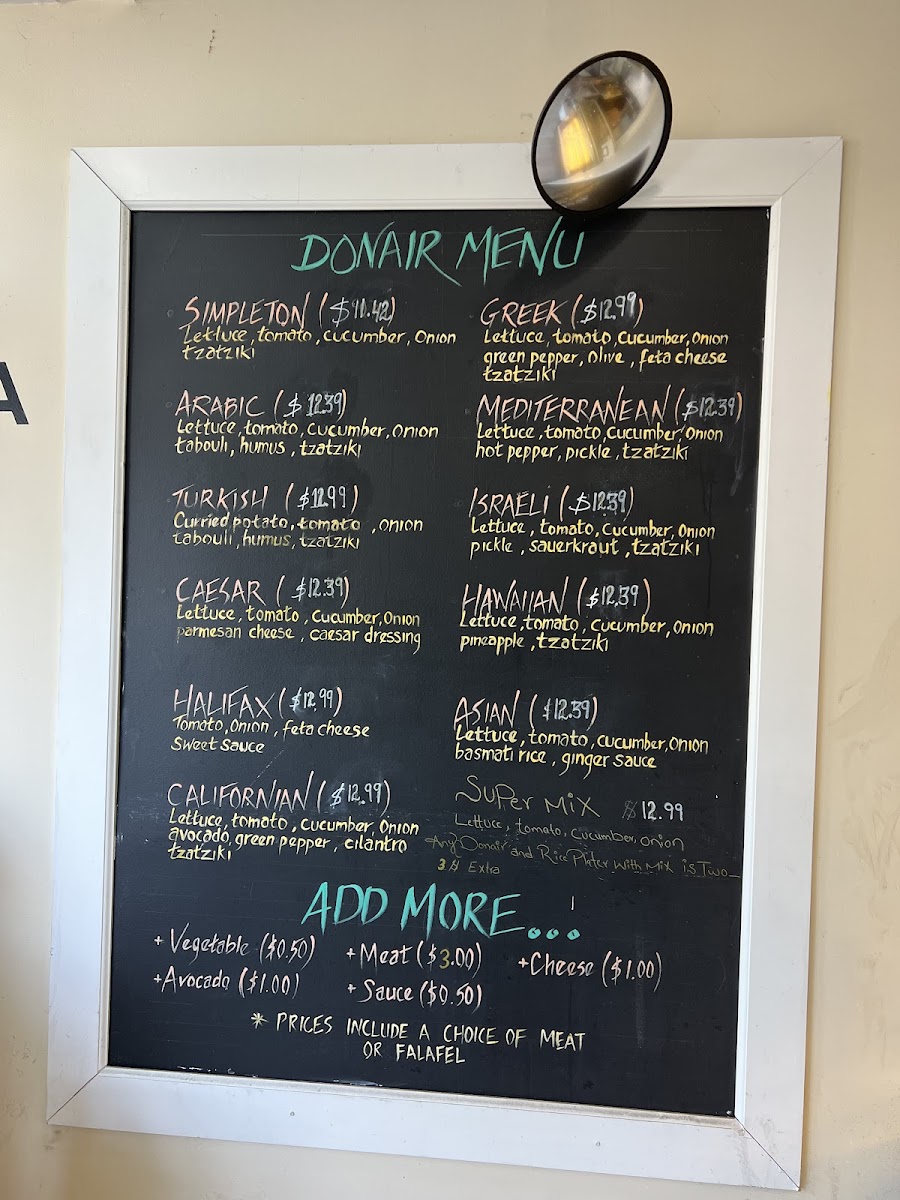 A
DONAIR MENU
SIMPLETON ($11.42)
Lettuce, tomato, cucumber, Onion
tzatziki
ARABIC ($12.39)
Lettuce, tomato, cucumber, onion
tabouli, humus, tzatziki
TURKISH ($12.99)
Curried potato, tomato, onion
tabouli, humus, tzatziki
CAESAR ($12.39)
Lettuce, tomato, cucumber, Onion
parmesan cheese, caesar dressing
HALIFAX ($12.99)
Tomato, Onion, feta cheese
Sweet Sauce
CALIFORNIAN ($12.99)
Lettuce, tomato, cucumber, Onion
avocado, green pepper, cilantro
tzatziki
GREEK ($12.99)
Lettuce, tomato, cucumber, Onion
green pepper, olive, feta cheese
tzatziki
MEDITERRANEAN ($12.39)
Lettuce, tomato, cucumber, Onion
hot pepper, pickle, tzatziki
ISRAELI ($12.39)
Lettuce, tomato, cucumber, Onion
pickle, sauerkraut, tzatziki
HAWAIIAN ($12.39)
Lettuce, tomato, cucumber, Onion
pineapple, tzatziki
ASIAN ($12.39)
Lettuce, tomato, cucumber, Onion
basmati rice, ginger sauce
Super Mix $12.99
Lettuce, tomato, Cucumber, onion
Any Donair and Rice Plater with Mix is Two
3$ Extra
ADD MORE...
+ Vegetable ($0.50)
+ Meat ($3.00)
+ Cheese ($1.00)
+ Avocado ($1.00)
+ Sauce ($0.50)
* PRICES INCLUDE A CHOICE OF MEAT
OR FALAFEL